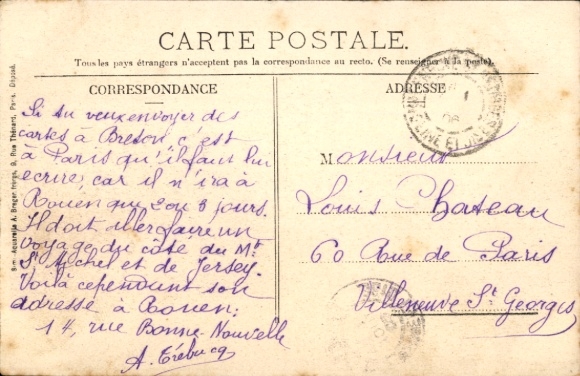 CARTE POSTALE.
Tous les pays étrangers n'acceptent pas la correspondance au recto. (Se renseigner à la poste).
CORRESPONDANCE
Si tu veux envoyer des
cartes à Breton c'est
à Paris qu'il faut lui
écrire, car il n'ira à
Rouen que 2 ou 3 jours.
Il doit aller faire un
voyage du côté du Mt
St Michel et de Jersey.
Voilà cependant son
adresse à Rouen:
14, rue Bonne-Nouvelle
A. Trébucq
ADRESSE
Monsieur
Louis Chateau
60 Rue de Paris
Villeneuve St Georges
SEINE ET OISE
Aquarelle A. Breger frères, 9, Rue Thénard, Paris. Déposé.